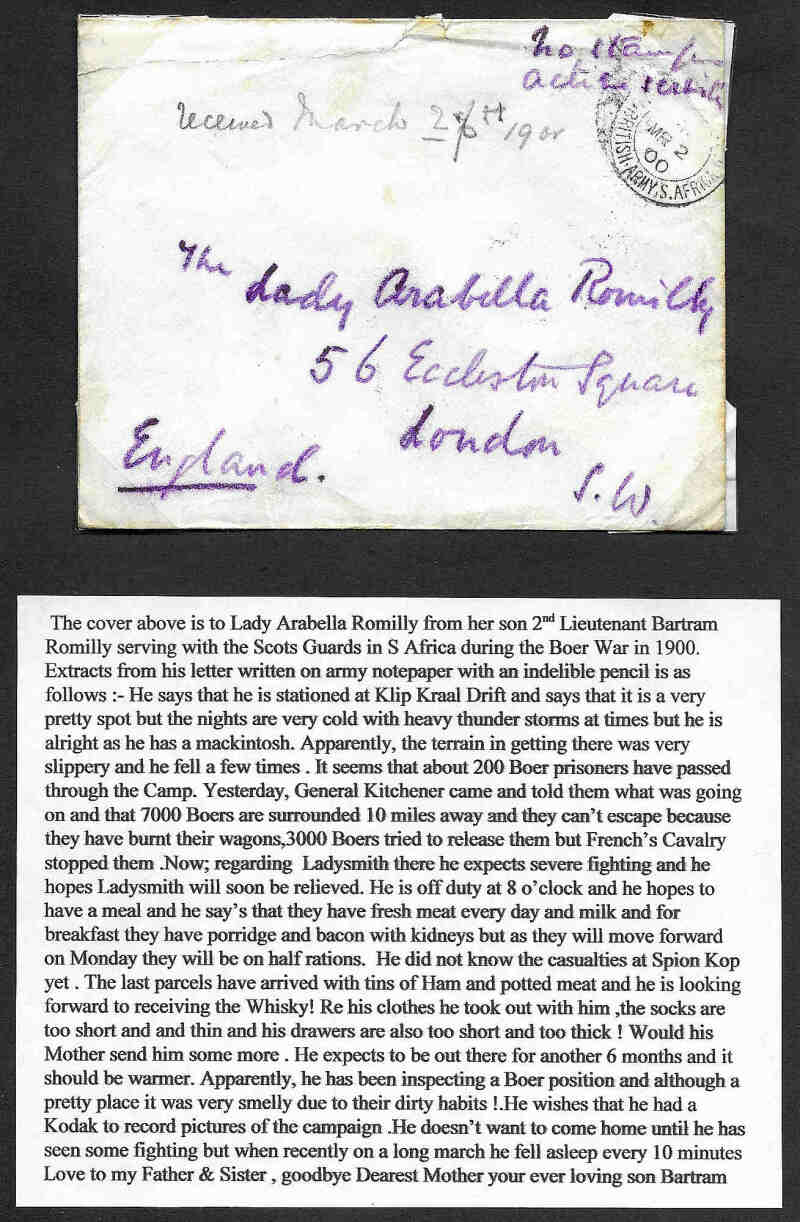 No stamps
active service
received March 26th 1900
MR 2
00
BRITISH ARMY S. AFRICA
The Lady Arabella Romilly
56 Eccleston Square
London
England.
S.W.
The cover above is to Lady Arabella Romilly from her son 2nd Lieutenant Bartram
Romilly serving with the Scots Guards in S Africa during the Boer War in 1900.
Extracts from his letter written on army notepaper with an indelible pencil is as
follows :- He says that he is stationed at Klip Kraal Drift and says that it is a very
pretty spot but the nights are very cold with heavy thunder storms at times but he is
alright as he has a mackintosh. Apparently, the terrain in getting there was very
slippery and he fell a few times . It seems that about 200 Boer prisoners have passed
through the Camp. Yesterday, General Kitchener came and told them what was going
on and that 7000 Boers are surrounded 10 miles away and they can't escape because
they have burnt their wagons,3000 Boers tried to release them but French's Cavalry
stopped them .Now; regarding Ladysmith there he expects severe fighting and he
hopes Ladysmith will soon be relieved. He is off duty at 8 o'clock and he hopes to
have a meal and he say's that they have fresh meat every day and milk and for
breakfast they have porridge and bacon with kidneys but as they will move forward
on Monday they will be on half rations. He did not know the casualties at Spion Kop
yet . The last parcels have arrived with tins of Ham and potted meat and he is looking
forward to receiving the Whisky! Re his clothes he took out with him ,the socks are
too short and and thin and his drawers are also too short and too thick ! Would his
Mother send him some more . He expects to be out there for another 6 months and it
should be warmer. Apparently, he has been inspecting a Boer position and although a
pretty place it was very smelly due to their dirty habits !.He wishes that he had a
Kodak to record pictures of the campaign .He doesn't want to come home until he has
seen some fighting but when recently on a long march he fell asleep every 10 minutes
Love to my Father & Sister , goodbye Dearest Mother your ever loving son Bartram